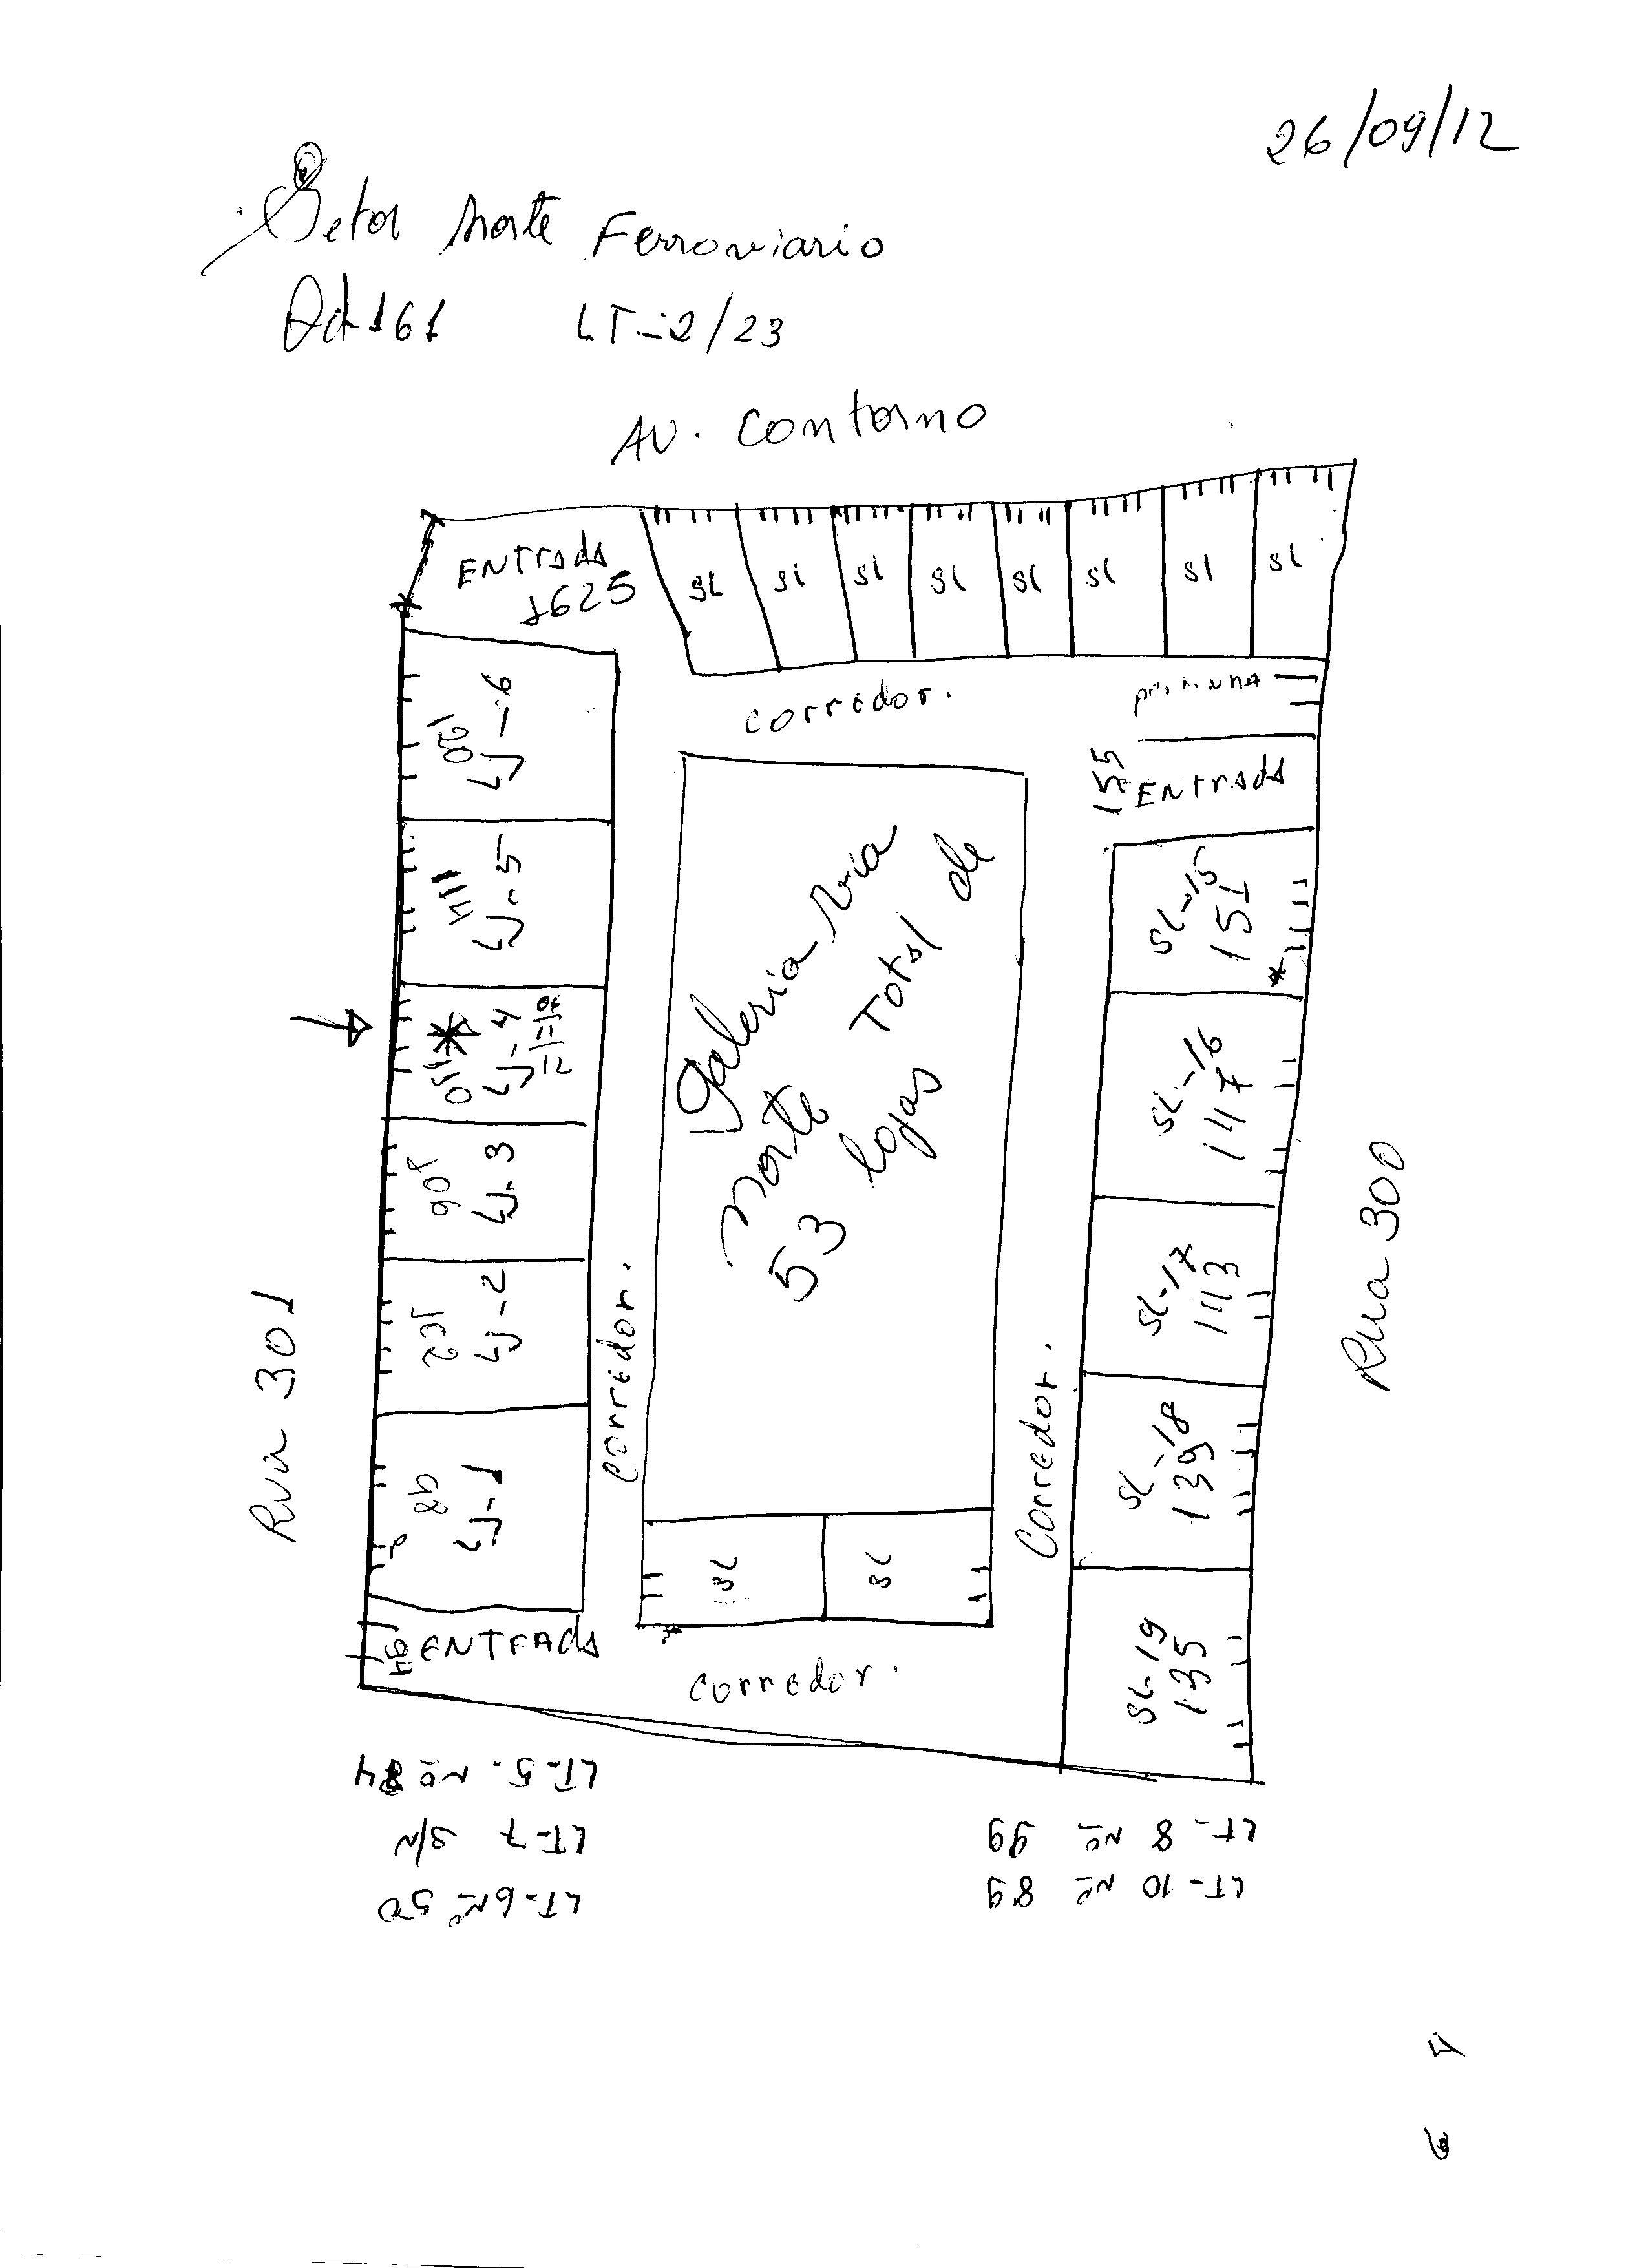 26/09/12
Setor Norte Ferroviario
Qd-161 LT-2/23
AV. Contorno
ENTrada
1625
SL SL SL SL SL SL SL SL
corredor.
portinha
155
ENTrada
120
LJ-6
114
LJ-5
110
LJ-4
106
LJ-3
102
LJ-2
98
LJ-1
94
ENTrada
Rua 301
corredor.
Galeria Via
Norte Total de
53 lojas
SL SL
Corredor.
corredor.
SL-15
151
SL-16
147
SL-17
143
SL-18
139
SL-19
135
Rua 300
LT-5. Nº 84
LT-7 S/N
LT-6 Nº 50
LT-8 Nº 99
LT-10 Nº 89